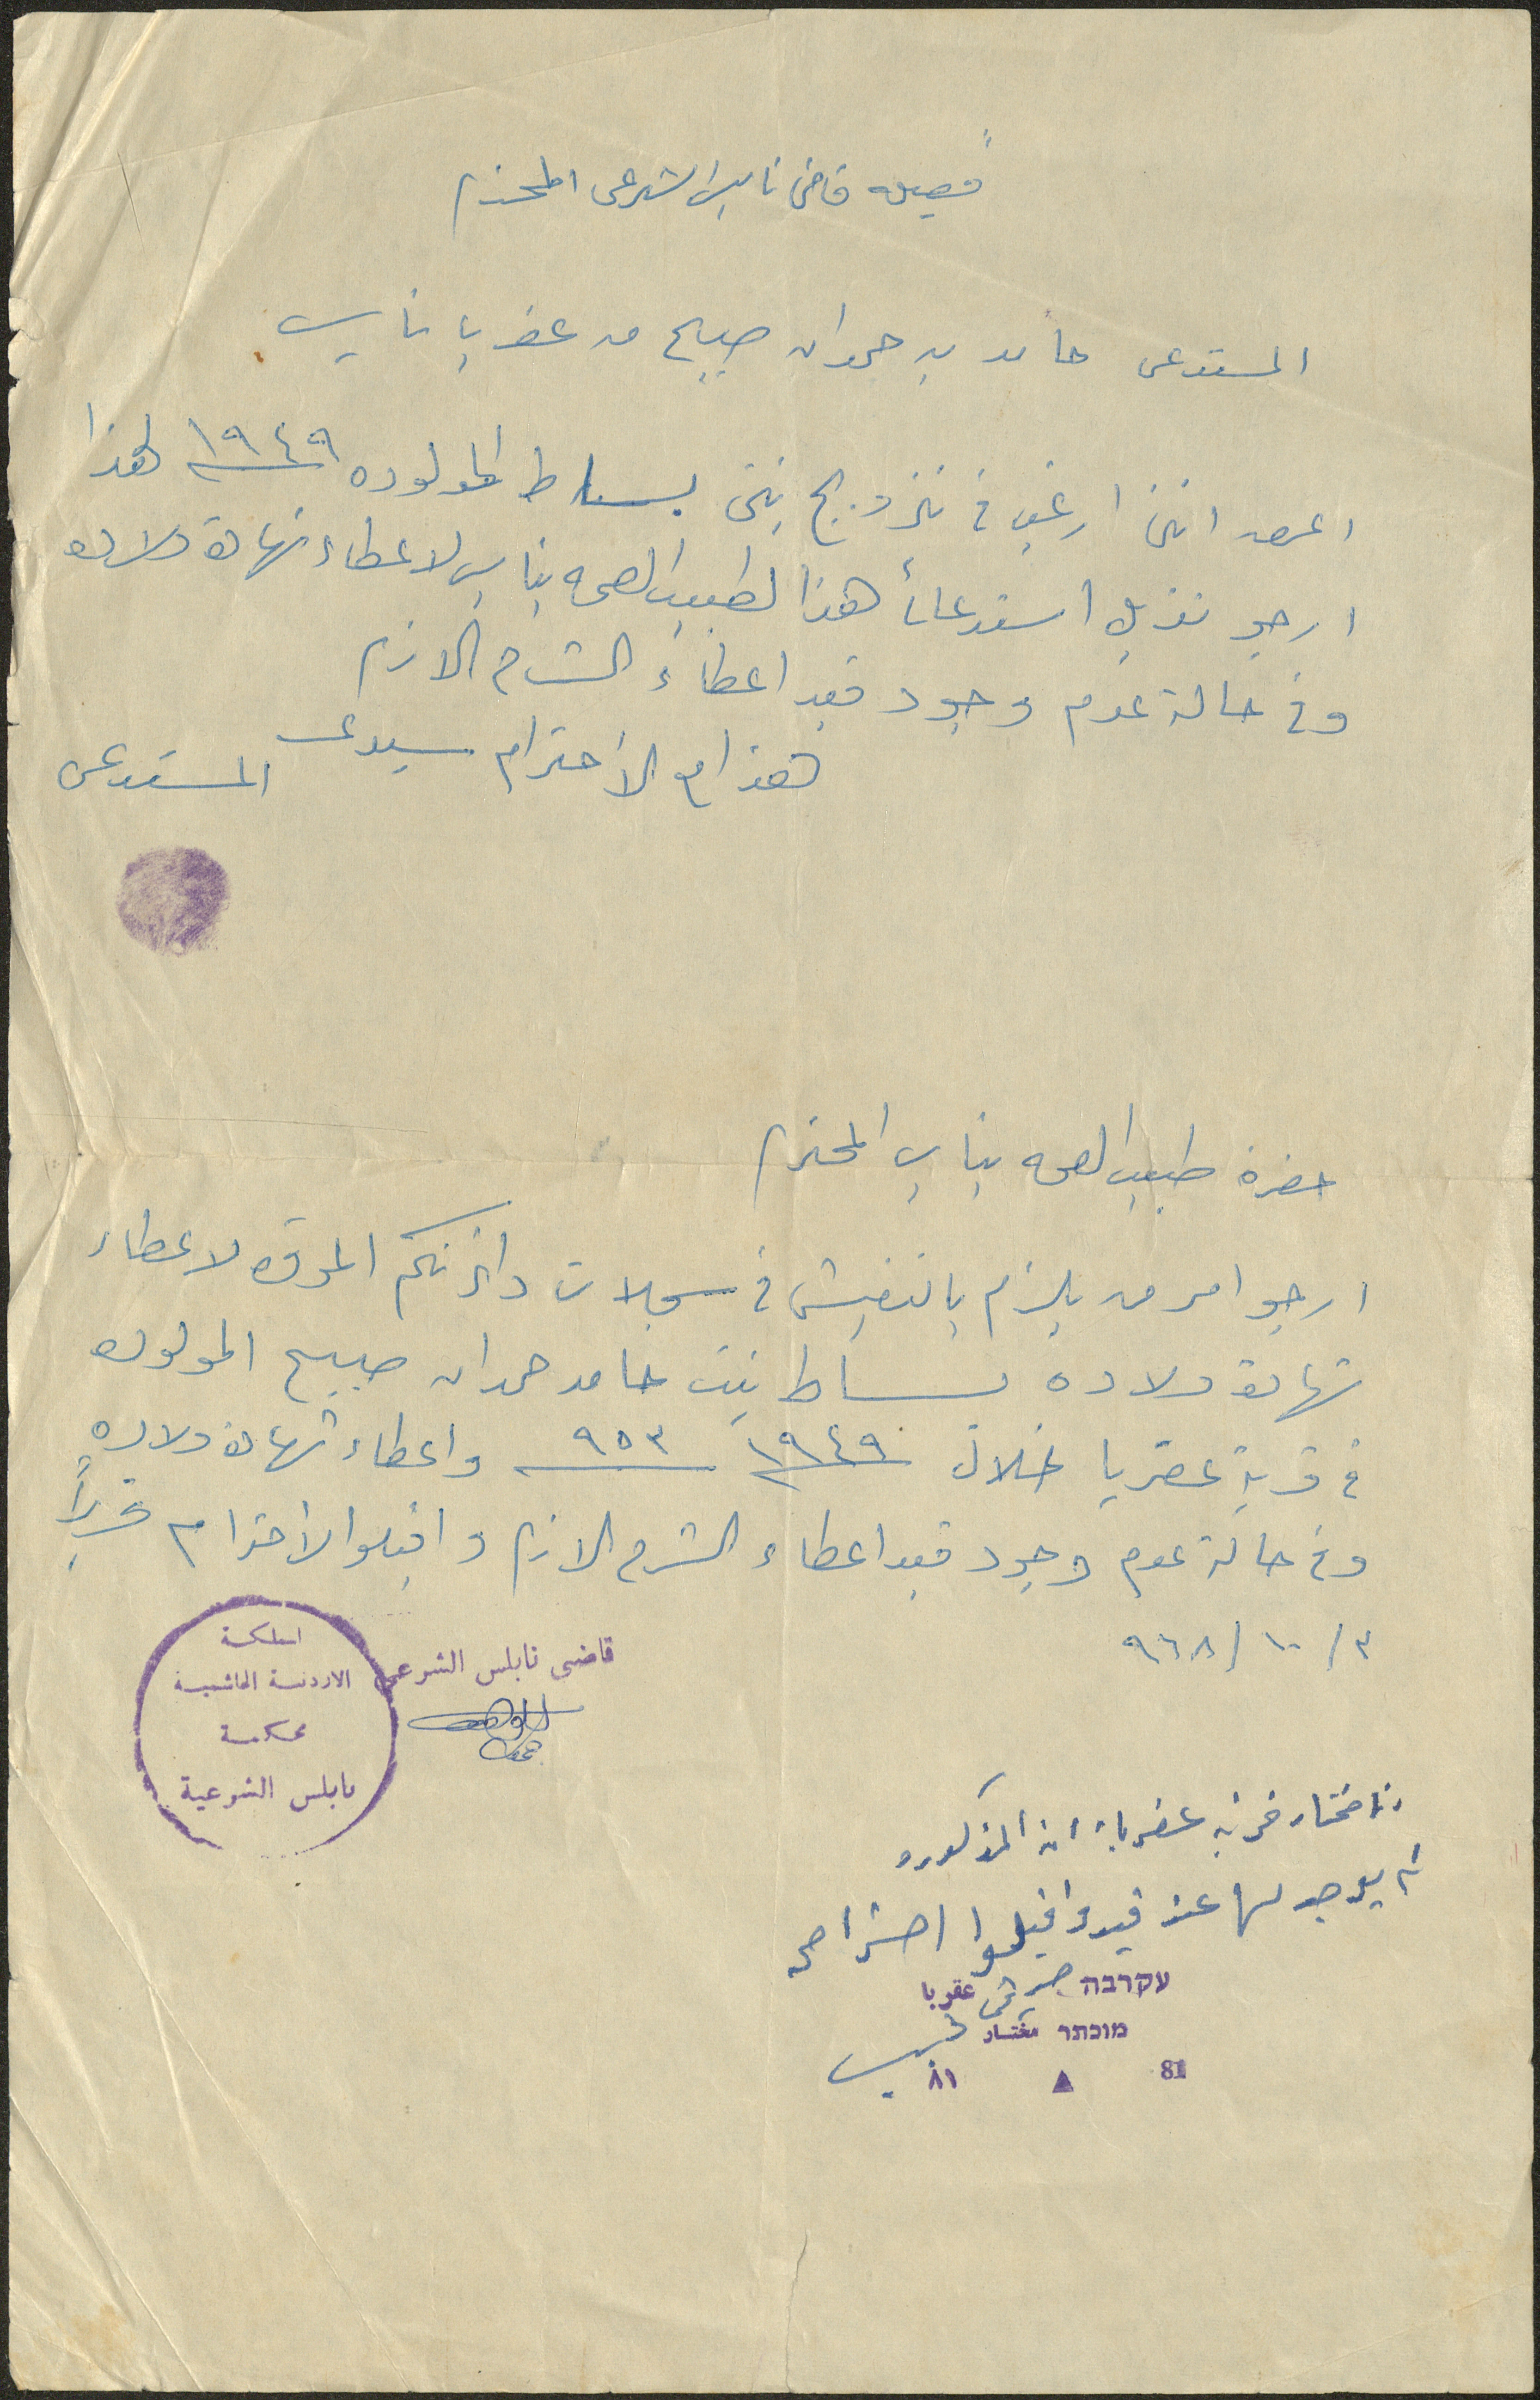 فضيلة قاضي نابلس الشرعي المحترم
المستدعي حامد بن حمدان صبيح من عقربا نابلس
اعرض انني ارغب في تزويج بنتي بساط المولوده ١٩٤٩ لهذا
ارجو تذييل استدعائي هذا لطبيب الصحه بنابلس لاعطاء شهادة ولاده
وفي حالة عدم وجود قيد اعطاء الشرح اللازم
هذا مع الاحترام سيدي
المستدعي
حضرة طبيب الصحه بنابلس المحترم
ارجو امر من يلزم بالتفتيش في سجلات دائرتكم الموقره لاعطاء
شهادة ولاده بساط بنت حامد حمدان صبيح المولوده
في قرية عقربا خلال ١٩٤٩ ٩٥٣ واعطاء شهادة ولاده
وفي حالة عدم وجود قيد اعطاء الشرح اللازم واقبلوا الاحترام
٩٦٨/١٠/٣
قاضي نابلس الشرعي
المملكة
الاردنية الهاشمية
محكمة
نابلس الشرعية
انا مختار قرية عقربا ان المذكوره
لم يوجد لها عند قيد واقبلوا احترامي
עקרבה عقربا
מוכתר مختار
81 ٨١